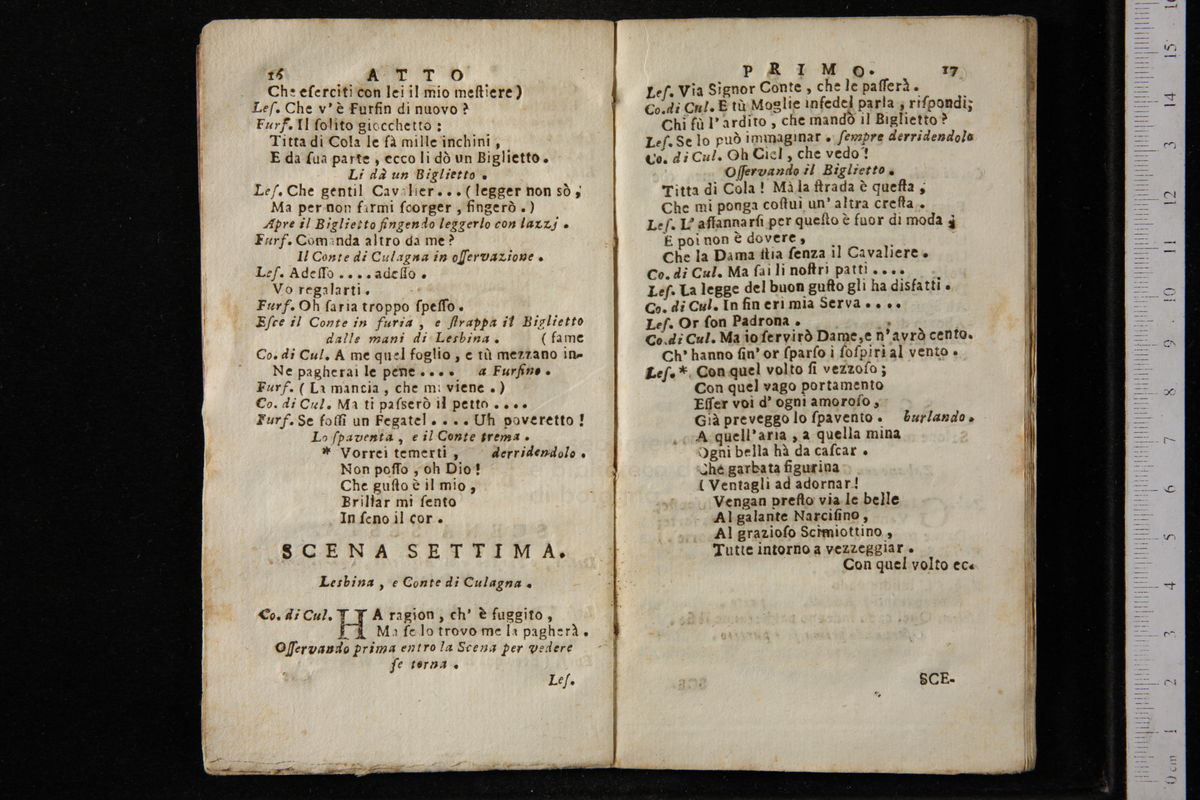 16 ATTO
Che eserciti con lei il mio mestiere)
Les. Che v' è Furfin di nuovo ?
Furf. Il solito giocchetto :
Titta di Cola le fà mille inchini ,
E da sua parte , ecco li dò un Biglietto .
Li dà un Biglietto .
Les. Che gentil Cavalier ... ( legger non sò ,
Ma per non farmi scorger , fingerò . )
Apre il Biglietto fingendo leggerlo con lazzj .
Furf. Comanda altro da me ?
Il Conte di Culagna in osservazione .
Les. Adesso .... adesso .
Vo regalarti .
Furf. Oh saria troppo spesso .
Esce il Conte in furia , e strappa il Biglietto
dalle mani di Lesbina . ( fame
Co. di Cul. A me quel foglio , e tù mezzano in-
Ne pagherai le pene .... a Furfino .
Furf. ( La mancia , che mi viene . )
Co. di Cul. Ma ti passerò il petto ....
Furf. Se fossi un Fegatel .... Uh poveretto !
Lo spaventa , e il Conte trema .
* Vorrei temerti , derridendolo .
Non posso , oh Dio !
Che gusto è il mio ,
Brillar mi sento
In seno il cor .
SCENA SETTIMA.
Lesbina , e Conte di Culagna .
Co. di Cul. HA ragion , ch' è fuggito ,
Ma se lo trovo me la pagherà .
Osservando prima entro la Scena per vedere
se torna .
Les.
PRIMO. 17
Les. Via Signor Conte , che le passerà .
Co. di Cul. E tù Moglie infedel parla , rispondi;
Chi fù l' ardito , che mandò il Biglietto ?
Les. Se lo può immaginar . sempre derridendolo
Co. di Cul. Oh Ciel , che vedo !
Osservando il Biglietto .
Titta di Cola ! Mà la strada è questa ,
Che mi ponga costui un' altra cresta .
Les. L' affannarsi per questo è fuor di moda ;
E poi non è dovere ,
Che la Dama stia senza il Cavaliere .
Co. di Cul. Ma sai li nostri patti ....
Les. La legge del buon gusto gli ha disfatti .
Co. di Cul. In fin eri mia Serva ....
Les. Or son Padrona .
Co. di Cul. Ma io servirò Dame, e n' avrò cento.
Ch' hanno sin' or sparso i sospiri al vento .
Les. * Con quel volto sì vezzoso ;
Con quel vago portamento
Esser voi d' ogni amoroso ,
Già preveggo lo spavento . burlando .
A quell' aria , a quella mina
Ogni bella hà da cascar .
Che garbata figurina
( Ventagli ad adornar !
Vengan presto via le belle
Al galante Narcisino ,
Al grazioso Scimiottino ,
Tutte intorno a vezzeggiar .
Con quel volto ec.
SCE-